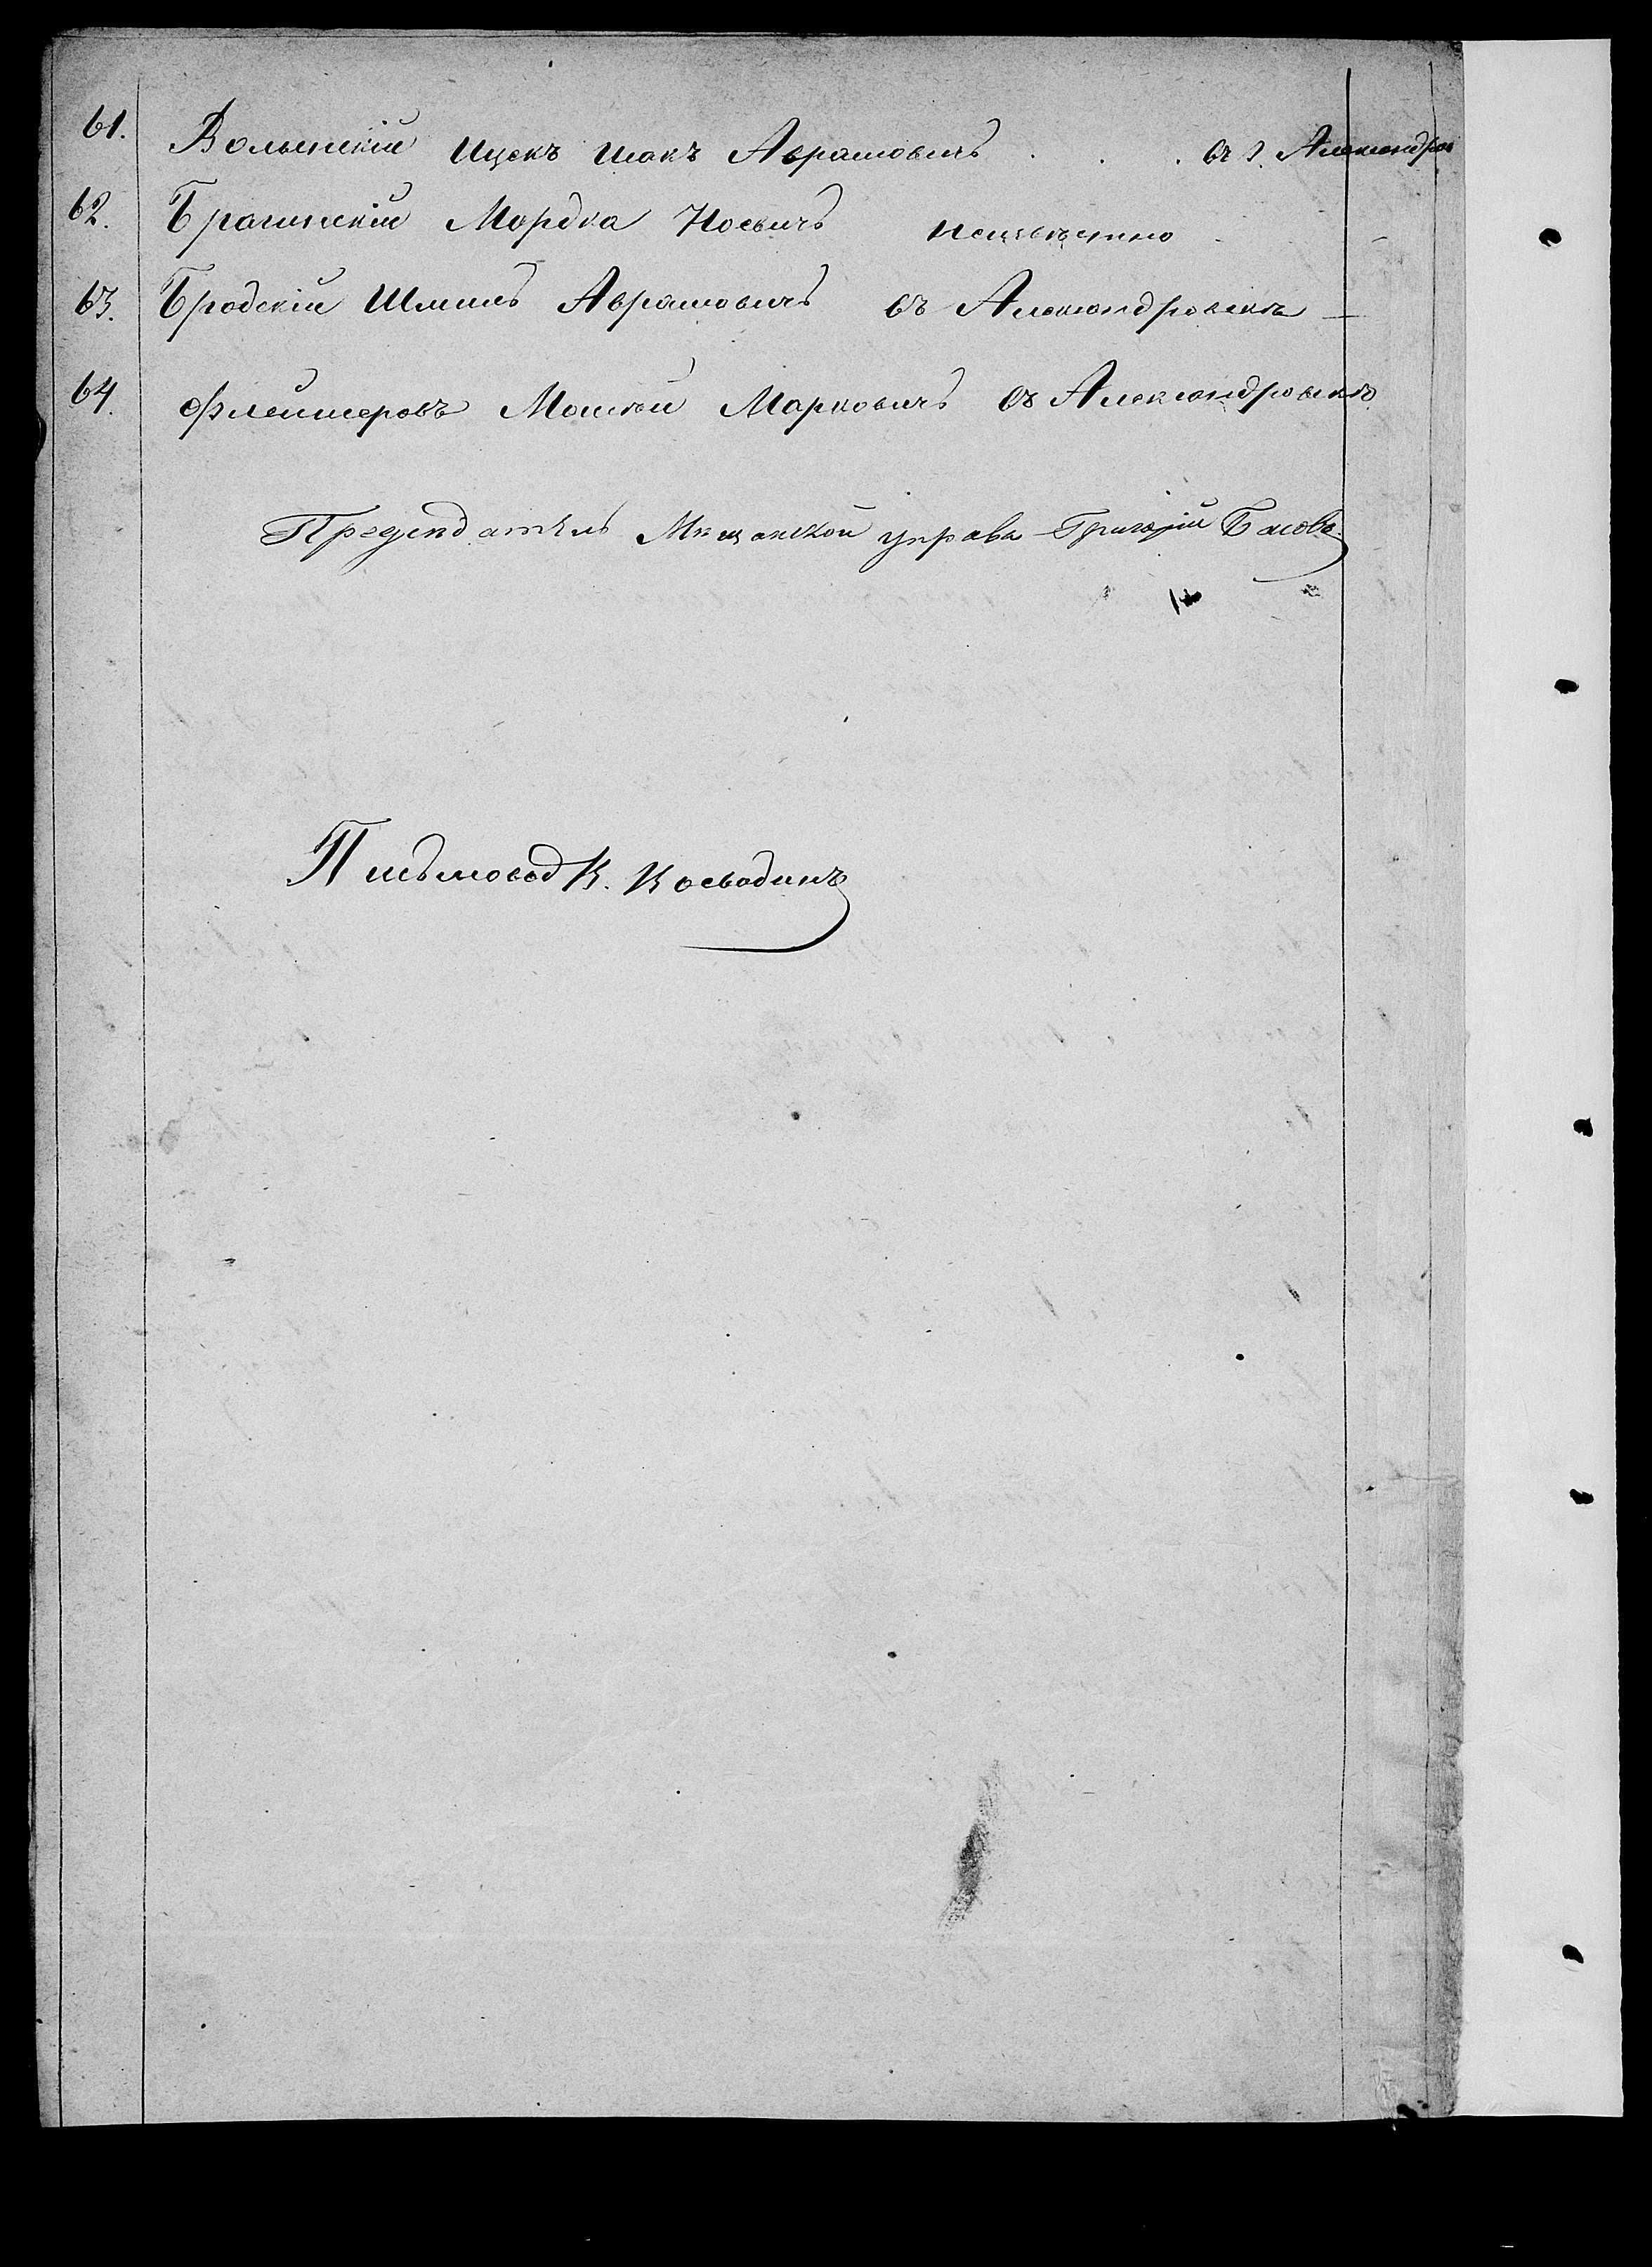 61. Волынскій Ицекъ Исакъ Аврамовичъ . . . въ г. Александров
62. Брагинскій Мордка Іосьичъ неизвѣстно
63. Бродскій Шмиль Аврамовичъ въ Александровскѣ —
64. Флейшеровъ Мошкъй Марковичъ въ Александровскѣ
Предсидатель Мѣщанской управы Григорій Басовъ
Письмовод К. Косводинъ